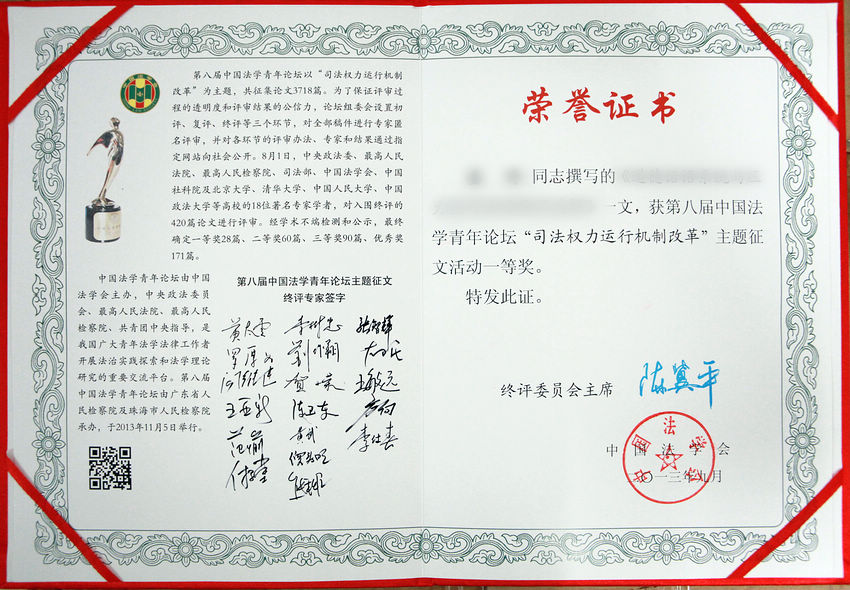 第八届中国法学青年论坛以“司法权力运行机制
改革”为主题，共征集论文3718篇。为了保证评审过
程的透明度和评审结果的公信力，论坛组委会设置初
评、复评、终评等三个环节，对全部稿件进行专家匿
名评审，并对各环节的评审办法、专家和结果通过指
定网站向社会公开。8月1日，中央政法委、最高人民
法院、最高人民检察院、司法部、中国法学会、中国
社科院及北京大学、清华大学、中国人民大学、中国
政法大学等高校的18位著名专家学者，对入围终评的
420篇论文进行评审。经学术不端检测和公示，最终
确定一等奖28篇、二等奖60篇、三等奖90篇、优秀奖
171篇。
中国法学青年论坛由中国
法学会主办，中央政法委员
会、最高人民法院、最高人民
检察院、共青团中央指导，是
我国广大青年法学法律工作者
开展法治实践探索和法学理论
研究的重要交流平台。第八届
中国法学青年论坛由广东省人
民检察院及珠海市人民检察院
承办，于2013年11月5日举行。
第八届中国法学青年论坛主题征文
终评专家签字
荣誉证书
同志撰写的
一文，获第八届中国法
学青年论坛“司法权力运行机制改革”主题征
文活动一等奖。
特发此证。
终评委员会主席 陈冀平
中国法学会
二〇一三年九月
中国法学会